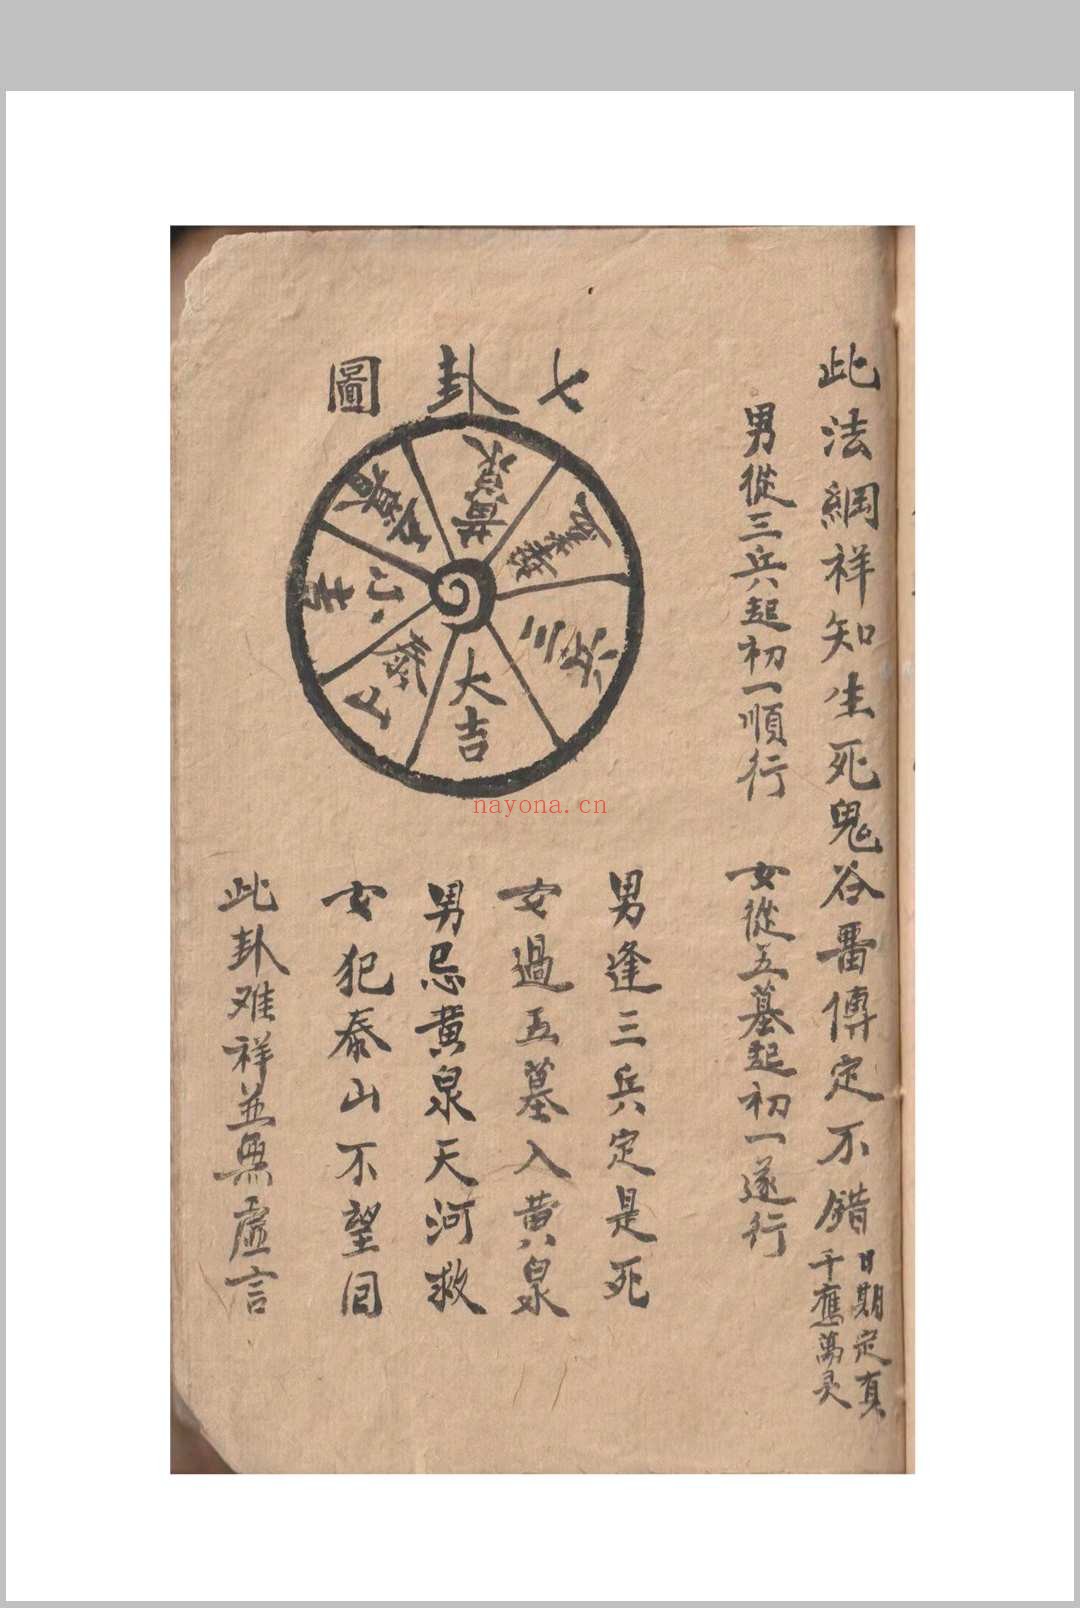 此法綱祥知生死鬼谷畨傳定不錯
日期定真
千應萬灵
男從三兵起初一順行
女從五墓起初一遂行
七卦圖
黃泉
三
大吉
小吉
男逢三兵定是死
女過五墓入黃泉
男忌黃泉天河救
女犯泰山不望回
此卦难祥並無虛言
nayona.cn